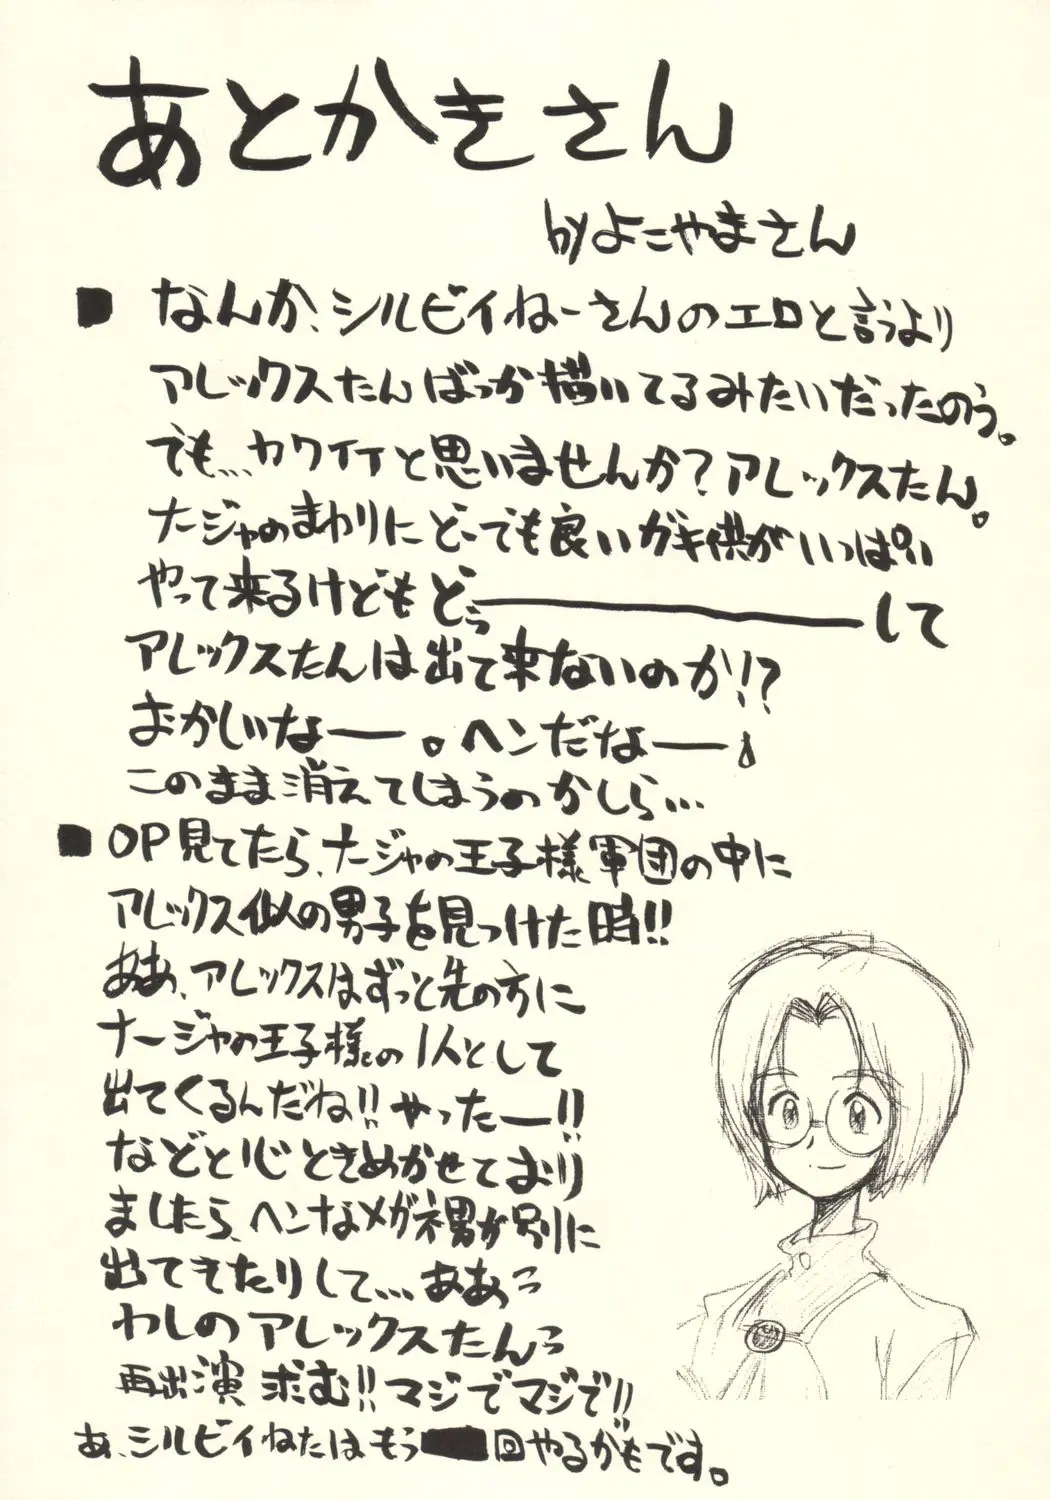 あとかきさん
byよこやまさん
■ なんか、シルビイねーさんのエロと言うより
アレックスたんばっか描いてるみたいだったのう。
でも…カワイイと思いませんか?アレックスたん。
ナージャのまわりにどーでも良いガキ供がいっぱい
やって来るけどもどぅ――――して
アレックスたんは出て来ないのか!?
おかしいなー。ヘンだなー。
このまま消えてしまうのかしら…
■ OP見てたら、ナージャの王子様軍団の中に
アレックス似の男子を見つけた時!!
ああ、アレックスはずっと先の方に
ナージャの王子様の1人として
出てくるんだね!!やったー!!
などと心ときめかせており
ましたら、ヘンなメガネ男が別に
出てきたりして…ああっ
わしのアレックスたんっ
再出演求む!!マジでマジで!!
あ、シルビイねたはもう 回やるかもです。